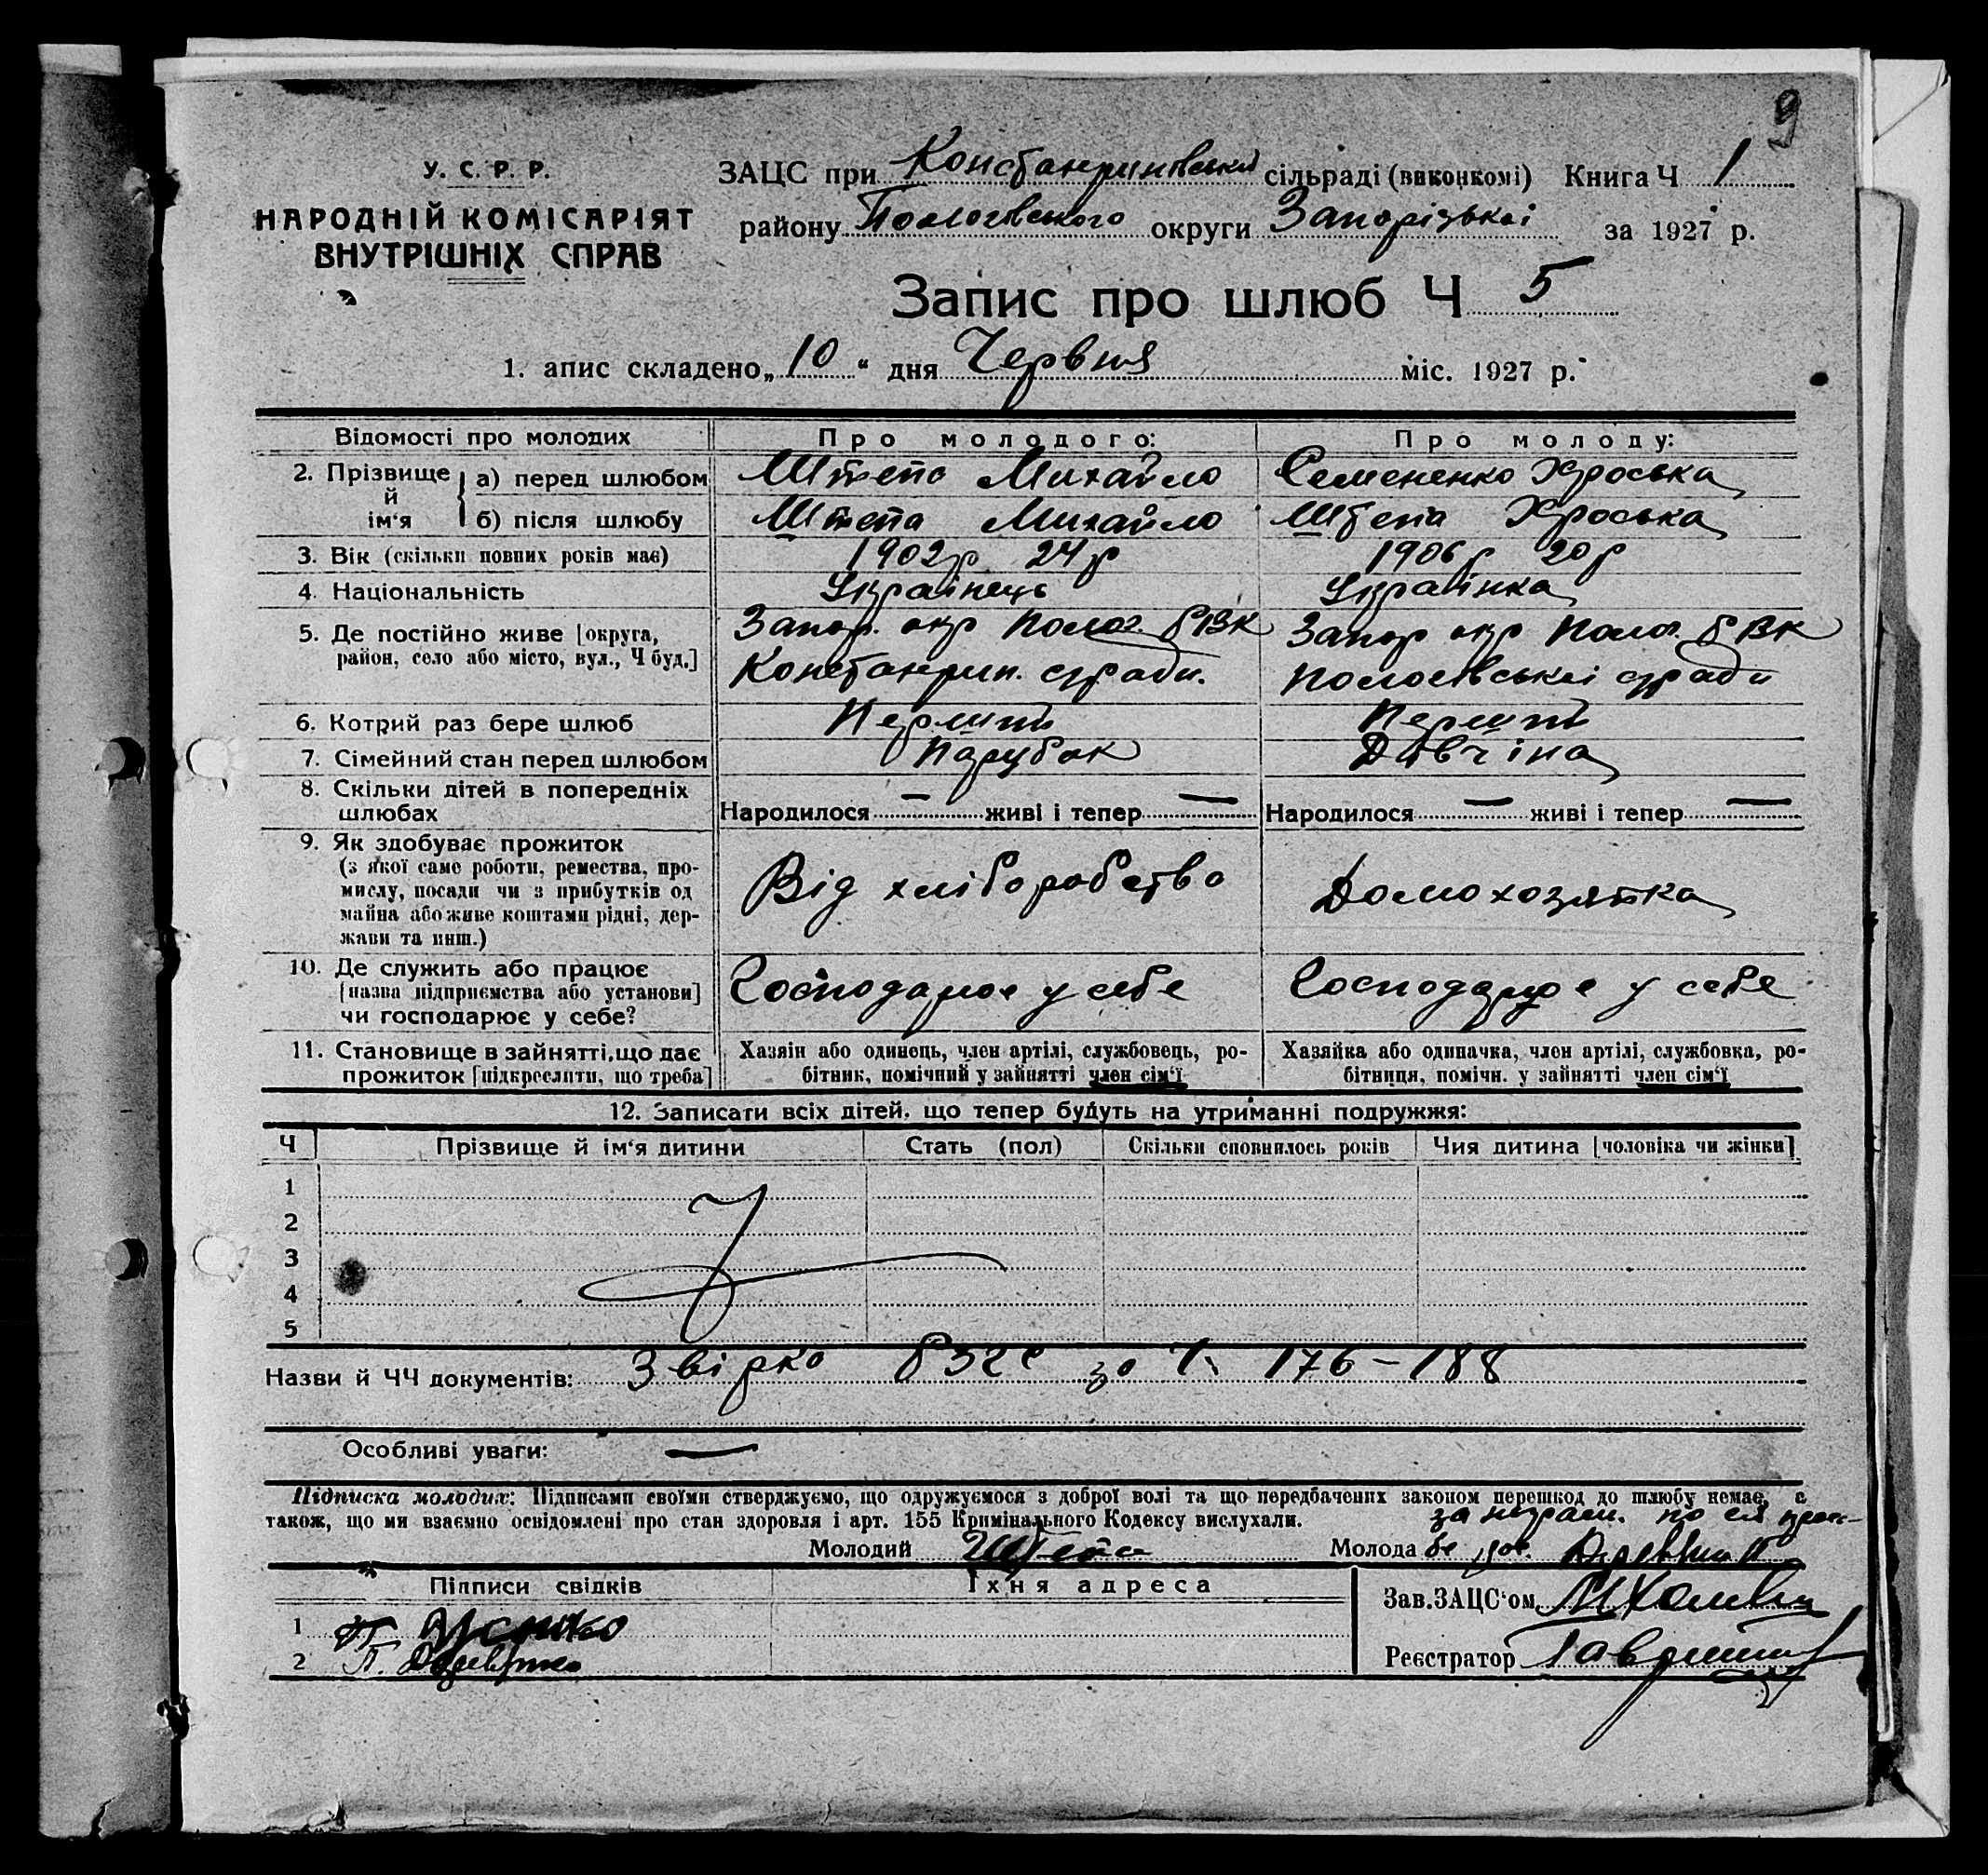 9
У. С. Р. Р.
НАРОДНІЙ КОМІСАРІЯТ
ВНУТРІШНІХ СПРАВ
ЗАЦС при сільраді (виконкомі) Книга Ч 1
району Пологівського округи Запорізькоі за 1927 р.
Запис про шлюб Ч 5
1. апис складено „10“ дня Червня міс. 1927 р.
Відомості про молодих Про молодого: Про молоду:
2. Прізвище й ім‘я а) перед шлюбом Штепа Михайло Семененко Хроська
б) після шлюбу Штепа Михайло Штепа Хроська
3. Вік (скільки повних років має) 1902р 24р 1906р 20р
4. Національність Украінець Украінка
5. Де постійно живе [округа, Запор. окр Полог. РВК Запор окр Полог. РВК
район, село або місто, вул., Ч буд.] сради. Пологівськоі сради
6. Котрий раз бере шлюб Перший Перший
7. Сімейний стан перед шлюбом Парубок Дівчіна
8. Скільки дітей в попередніх
шлюбах Народилося — живі і тепер — Народилося — живі і тепер —
9. Як здобуває прожиток
(з якої саме роботи, ремества, про-
мислу, посади чи з прибутків од
майна або живе коштами рідні, дер-
жави та инш.)
Від хліборобства Домохозяйка
10. Де служить або працює
[назва підприємства або установи]
чи господарює у себе?
Господарює у себе Господарює у себе
11. Становище в зайнятті, що дає Хазяїн або одинець, член артілі, службовець, ро- Хазяйка або одиначка, член артілі, службовка, ро-
прожиток [підкреслити, що треба] бітник, помічний у зайнятті член сім‘ї бітниця, помічн. у зайнятті член сім‘ї
12. Записати всіх дітей, що тепер будуть на утриманні подружжя:
Ч Прізвище й ім‘я дитини Стать (пол) Скільки сповнилось років Чия дитина [чоловіка чи жінки]
1
2
3
4
5
Назви й ЧЧ документів: Звірка за Ч. 176-188
Особливі уваги: —
Підписка молодих: Підписами своїми стверджуємо, що одружуємося з доброї волі та що передбачених законом перешкод до шлюбу немає, а
також, що ми взаємно освідомлені про стан здоровля і арт. 155 Кримінального Кодексу вислухали. за неграм. по ея
Молодий Штепа Молода
Підписи свідків Їхня адреса Зав. ЗАЦС‘ом
1 П.
2 П. Реєстратор